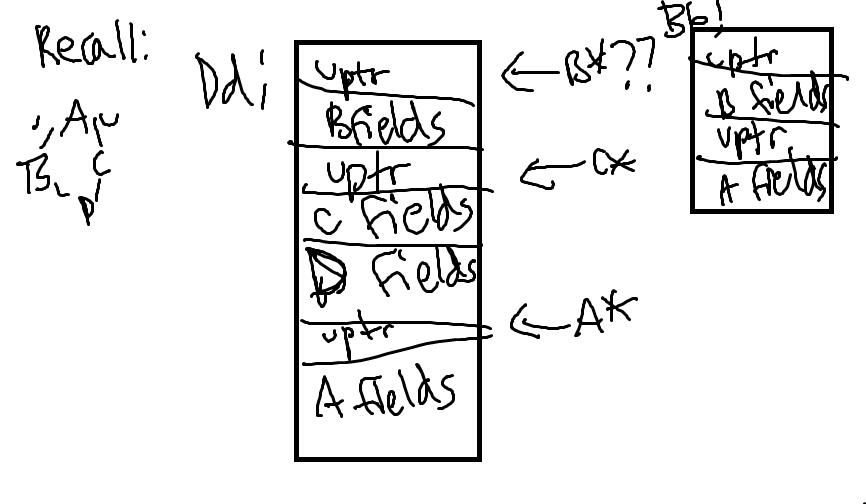 Recall:
A
B
C
D
Dd;
vptr
B fields
vptr
C fields
D fields
vptr
A fields
B*??
C*
A*
Bb;
vptr
B fields
vptr
A fields